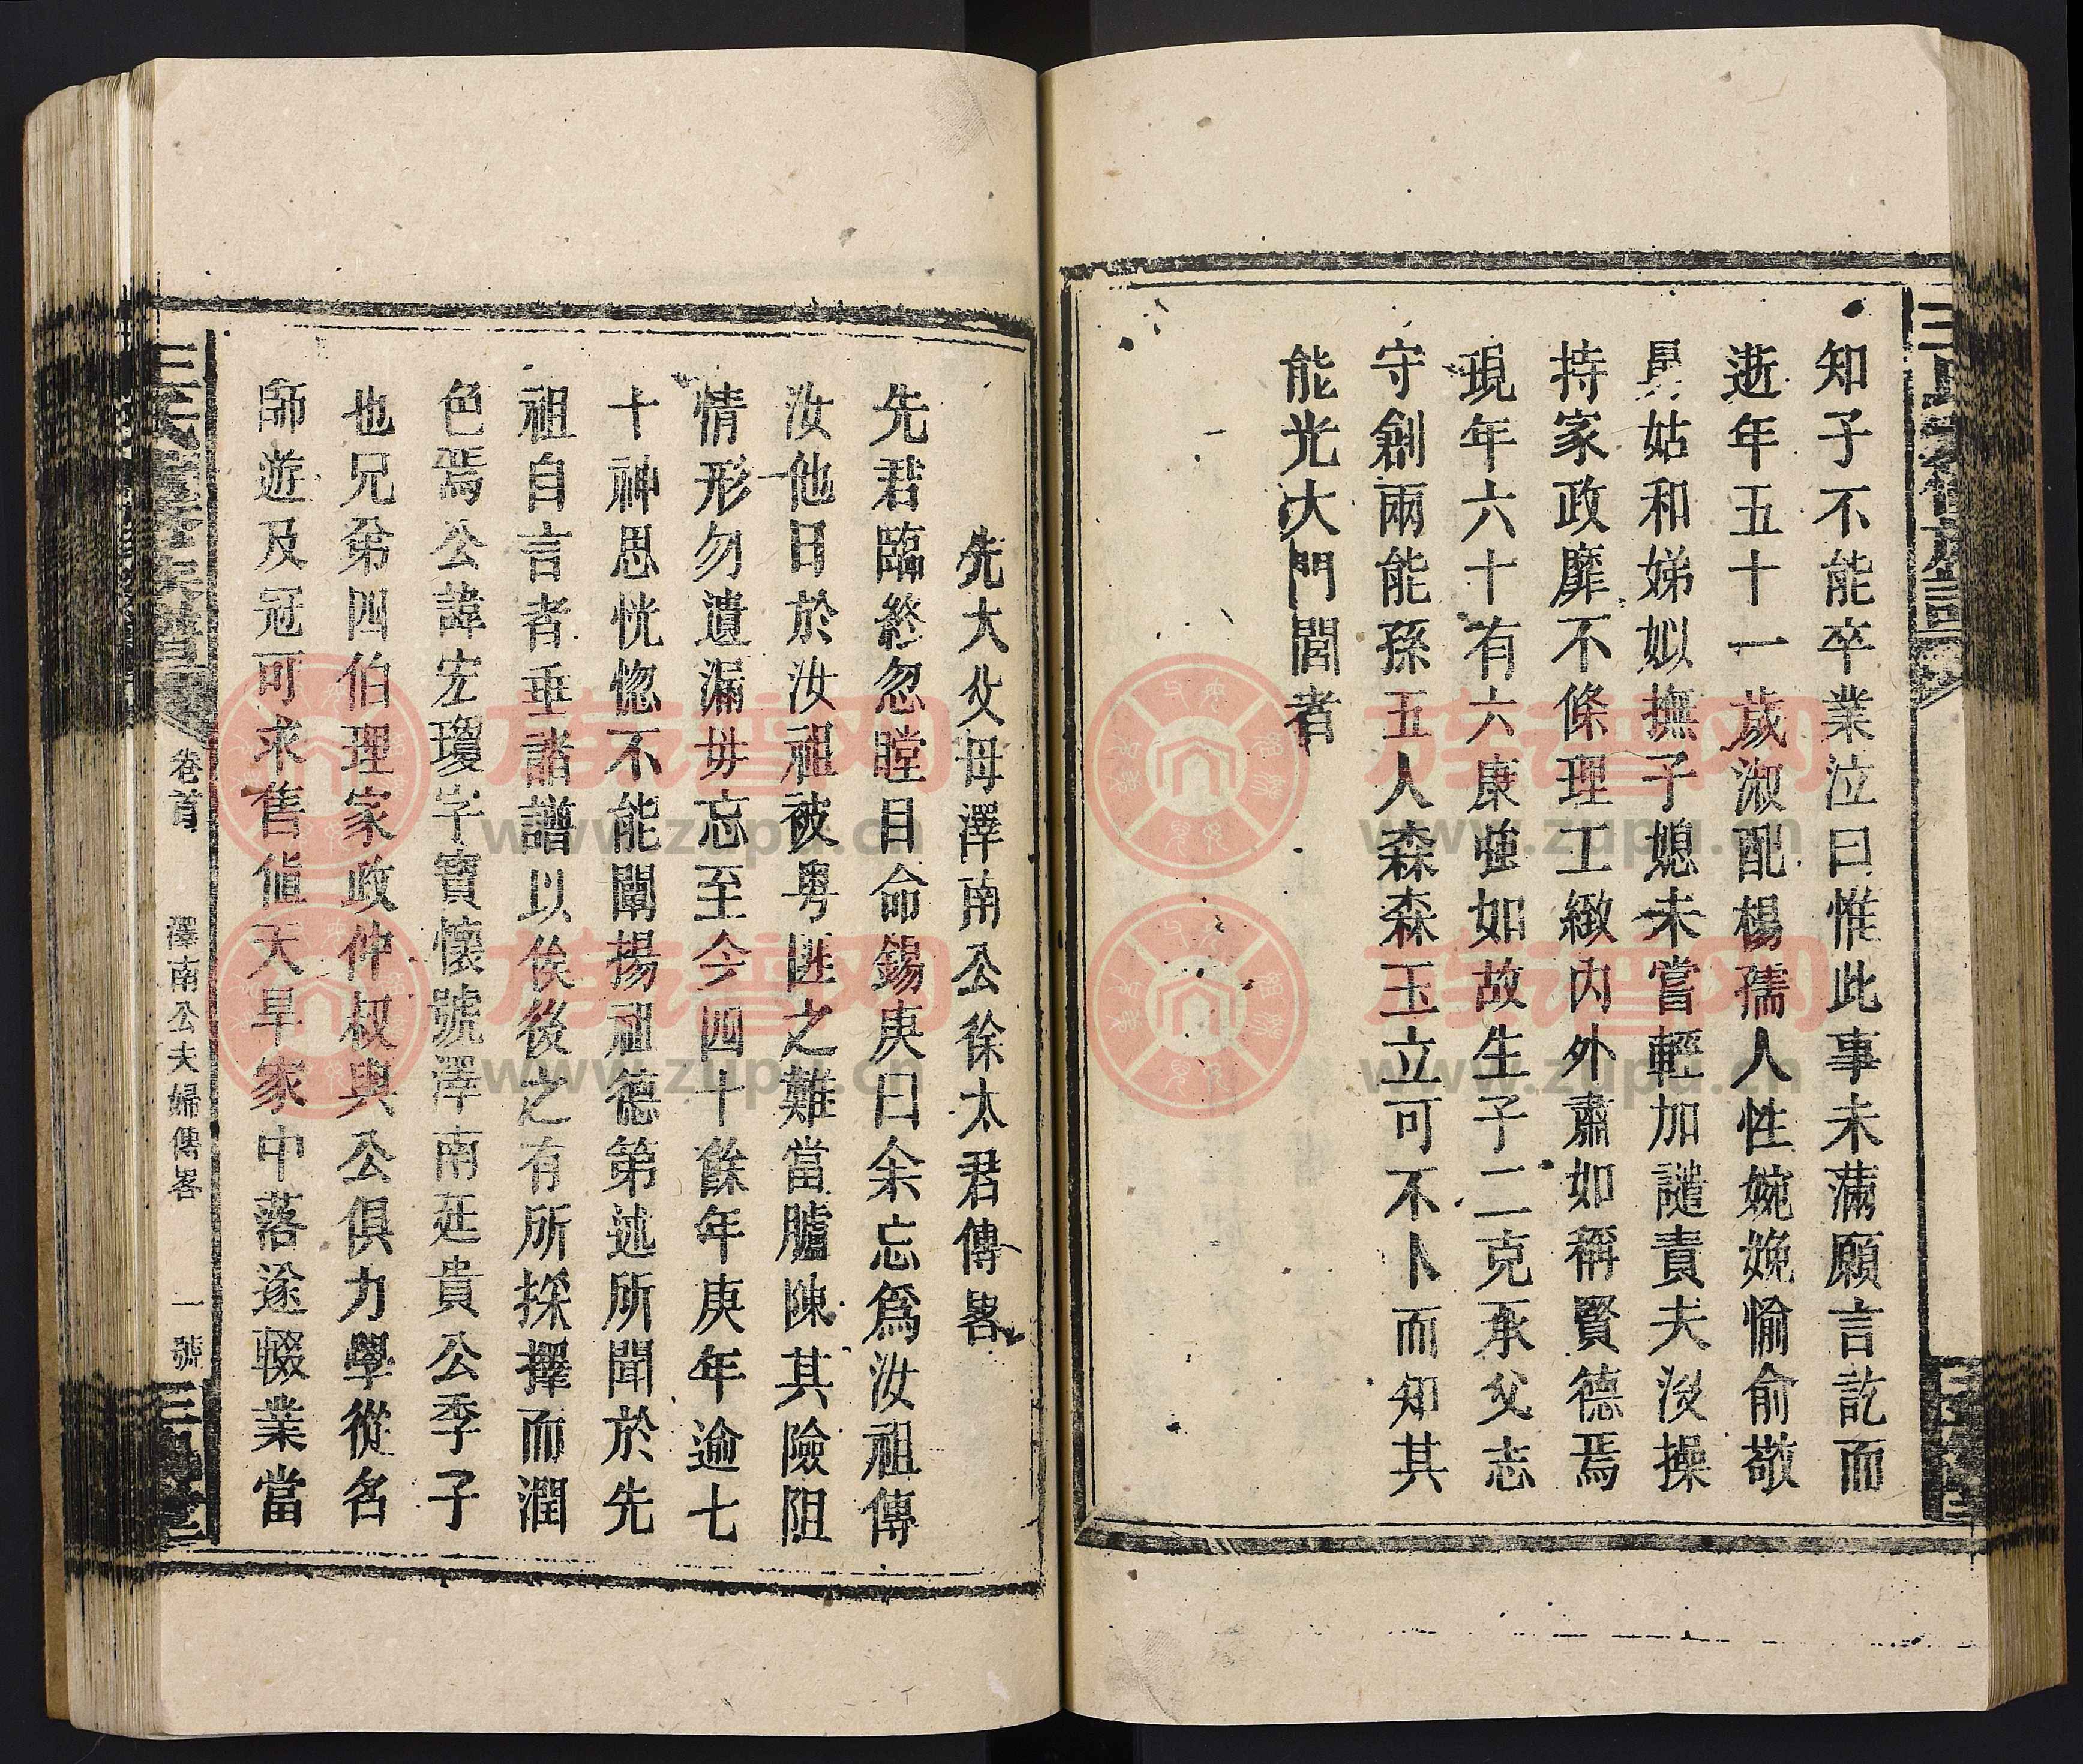 知子不能卒業泣曰惟此事未滿願言訖而
逝年五十一歲淑配楊孺人性婉娩愉俞敬
舅姑和娣姒撫子媳未嘗輕加譴責夫沒操
持家政靡不條理工緻內外肅如稱賢德焉
現年六十有六康強如故生子二克承父志
守創兩能孫五人森森玉立可不卜而知其
能光大門閭者
先大父母澤南公徐太君傳畧
先君臨終忽瞠目命錫庚曰余忘爲汝祖傳
汝他日於汝祖被粵匪之難當臚陳其險阻
情形勿遺漏毋忘至今四十餘年庚年逾七
十神思恍惚不能闡揚祖德第述所聞於先
祖自言者垂諸譜以俟後之有所採擇而潤
色焉公諱宏瓊字寶懷號澤南延貴公季子
也兄弟四伯理家政仲叔與公俱力學從名
師遊及冠可求售値大旱家中落遂輟業當
卷首
澤南公夫婦傳畧
一號
族譜网
www.zupu.cn
族譜网
www.zupu.cn
族譜网
www.zupu.cn
族譜网
www.zupu.cn